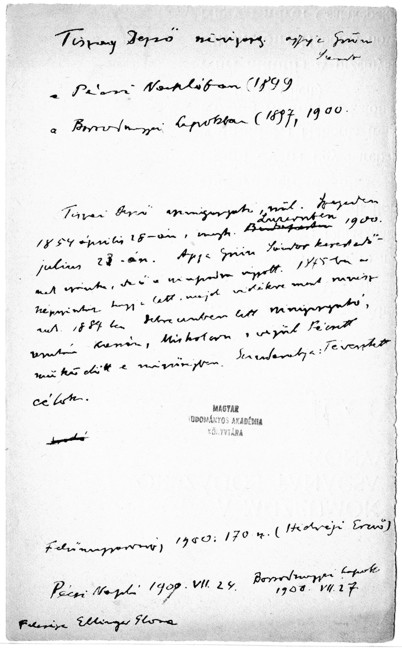 Tiszay Dezső színigazg. apja Grün
Sándor
a Pécsi Naplóban (1899
a Borsodmegyei Lapokban (1897, 1900.
Tiszai Dezső színigazgató, szül. Szegeden
1854 április 28-án, megh. Budapesten Luzernben 1900.
julius 23-án. Apja Grün Sándor kereskedő-
nek szánta, de ő a színpadra vágyott. 1875-ben a
tagja lett, majd vidékre ment
1884 ben Debrecenben lett színigazgató,
azután Kassán, Miskolcon, végül Pécsett
működött e minőségben. Színdarabja: Tévesztett
célok.
MAGYAR
TUDOMÁNYOS AKADÉMIA
KÖNYVTÁRA
Felsőmagyarország, 1900: 170 sz. (Hedvégi Ernő)
Pécsi Napló 1900. VII. 24. Borsodmegyei Lapok
1900. VII. 27.
Felesége Ellinger Ilona